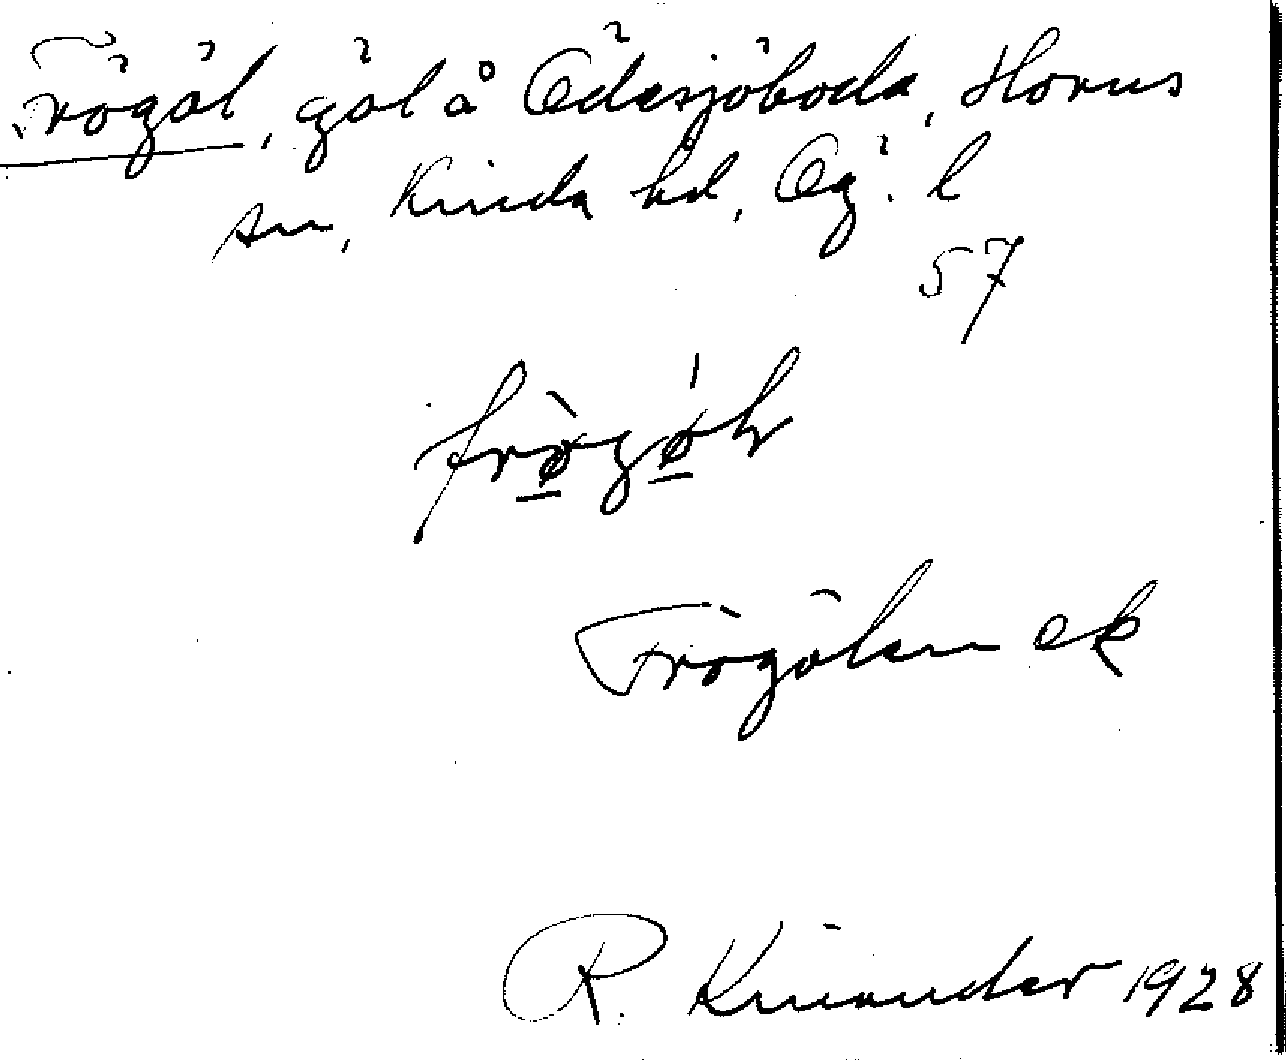 Frögöl, göl å Ödesjöboda, Horns
sn, Kinda hd, Ög. l
57
Frögölen ek
R. Kinander 1928